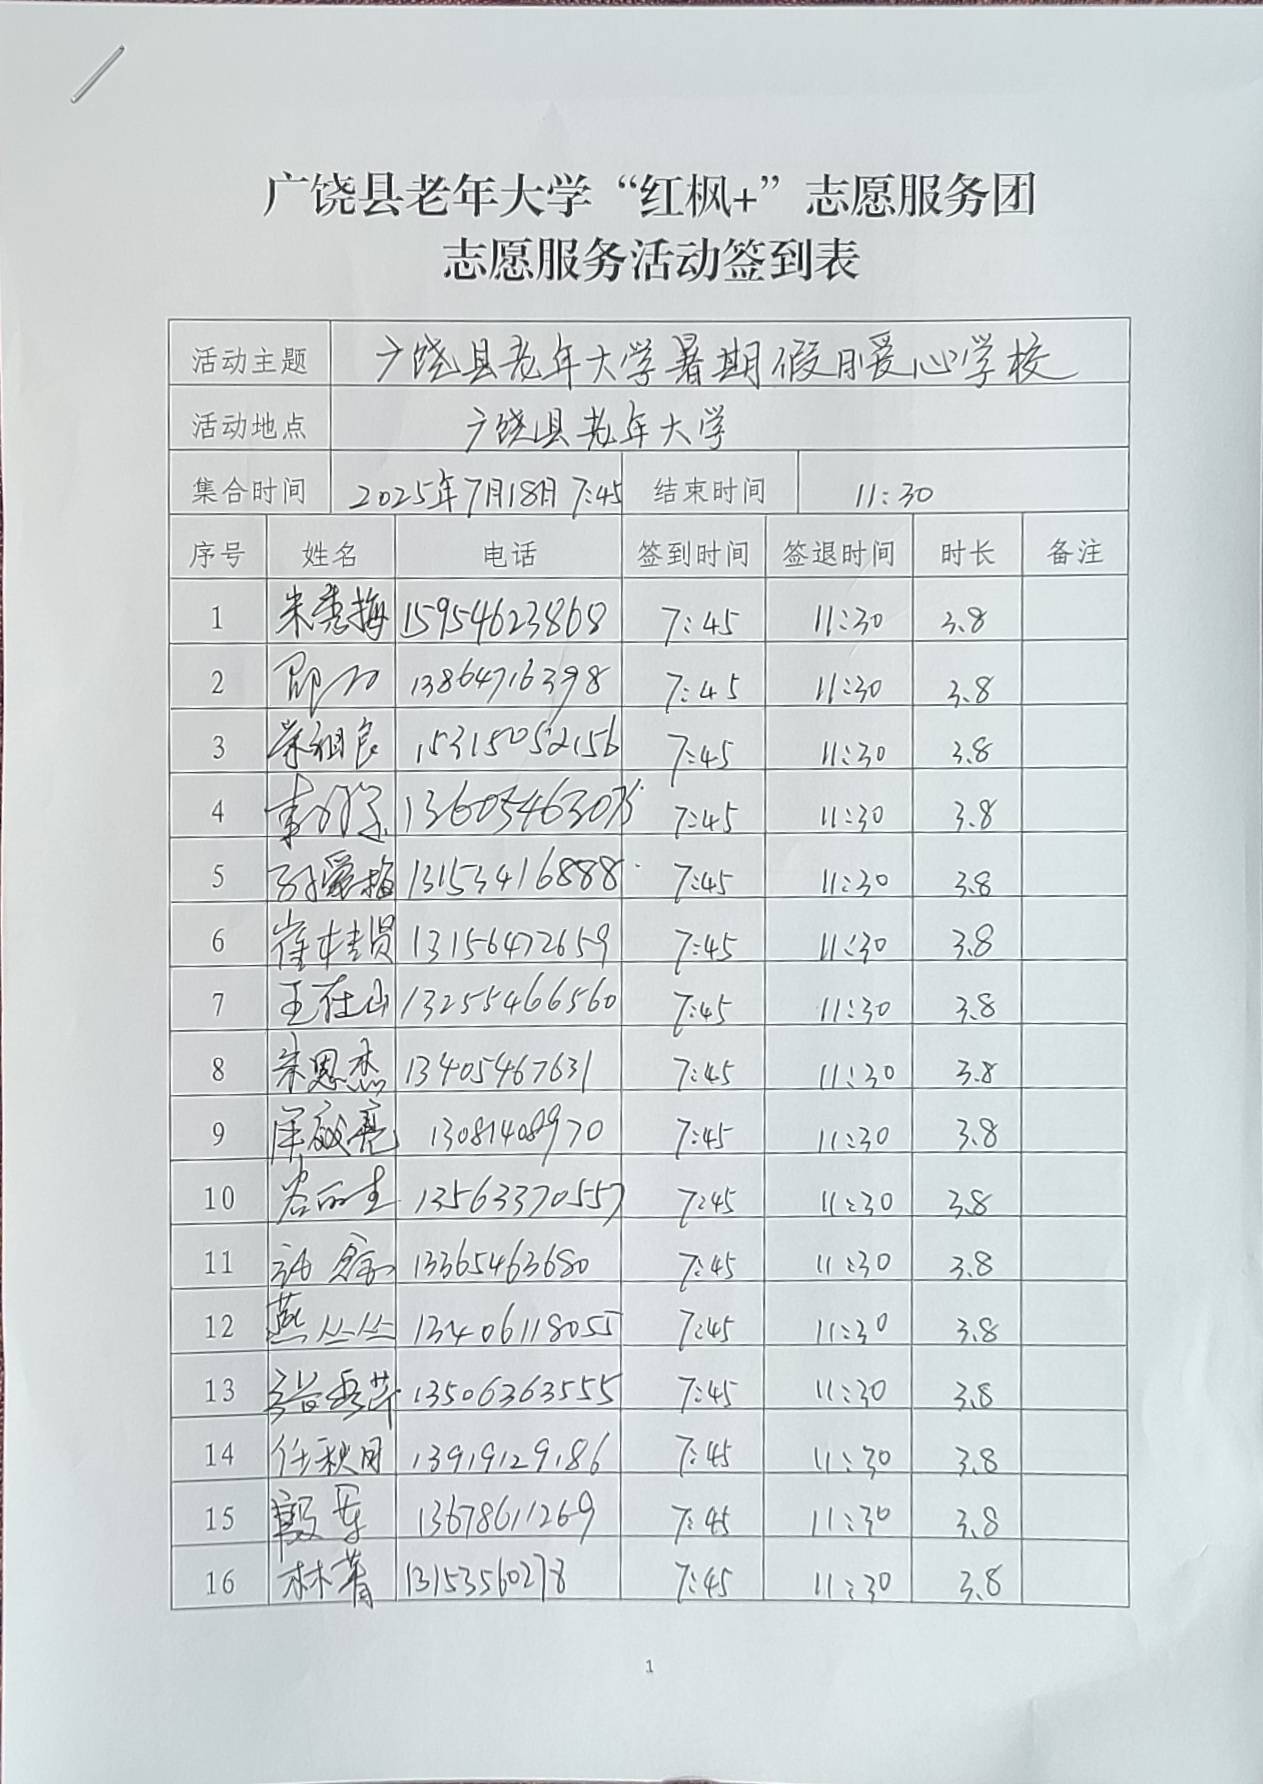 广饶县老年大学“红枫+”志愿服务团
志愿服务活动签到表
活动主题 广饶县老年大学暑期假日爱心学校
活动地点 广饶县老年大学
集合时间 2025年7月18日 7:45 结束时间 11:30
序号 姓名 电话 签到时间 签退时间 时长 备注
1 朱秀梅 15954623868 7:45 11:30 3.8
2 13864716398 7:45 11:30 3.8
3 荣祖良 15315052156 7:45 11:30 3.8
4 7:45 11:30 3.8
5 孙爱梅 13153416888 7:45 11:30 3.8
6 崔桂贤 13156472659 7:45 11:30 3.8
7 王在山 13255466560 7:45 11:30 3.8
8 朱恩杰 13405467631 7:45 11:30 3.8
9 13081408970 7:45 11:30 3.8
10 13563370557 7:45 11:30 3.8
11 13365463680 7:45 11:30 3.8
12 燕丛丛 13406118055 7:45 11:30 3.8
13 13506363555 7:45 11:30 3.8
14 任秋月 13919129186 7:45 11:30 3.8
15 殷军 13678611269 7:45 11:30 3.8
16 林菁 13153560278 7:45 11:30 3.8
1